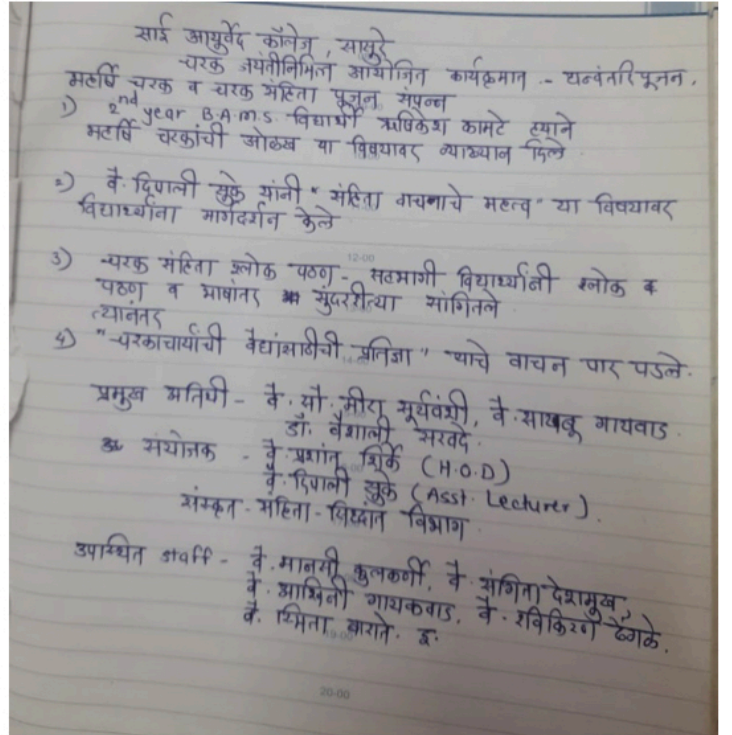 साई आयुर्वेद कॉलेज, सासुरे
चरक जयंतीनिमित्त आयोजित कार्यक्रमात - धन्वंतरि पूजन,
महर्षि चरक व चरक संहिता पूजन संपन्न
1) 2nd year B.A.M.S. विद्यार्थी ऋषिकेश कामटे ह्याने
महर्षि चरकांची ओळख या विषयावर व्याख्यान दिले
2) वै. दिपाली सुके यांनी "संहिता वाचनाचे महत्व" या विषयावर
विद्यार्थ्यांना मार्गदर्शन केले
12-00
3) चरक संहिता श्लोक पठण - सहभागी विद्यार्थ्यांनी श्लोक
पठण व भाषांतर सुंदररीत्या सांगितले
त्यानंतर
4) "चरकाचार्यांची वैद्यांसाठीची प्रतिज्ञा" याचे वाचन पार पडले.
प्रमुख अतिथी - वै. सौ. मीरा सूर्यवंशी, वै. गायवाड.
डॉ. वैशाली सरवदे.
संयोजक - वै. प्रशांत शिर्के (H.O.D)
वै. दिपाली सुके (Asst. Lecturer).
संस्कृत - संहिता - सिध्दांत विभाग.
उपस्थित staff - वै. मानसी कुलकर्णी, वै. संगिता देशमुख,
वै. गायकवाड, वै. रविकिरण ढेंगळे,
वै. स्मिता इ.
20-00